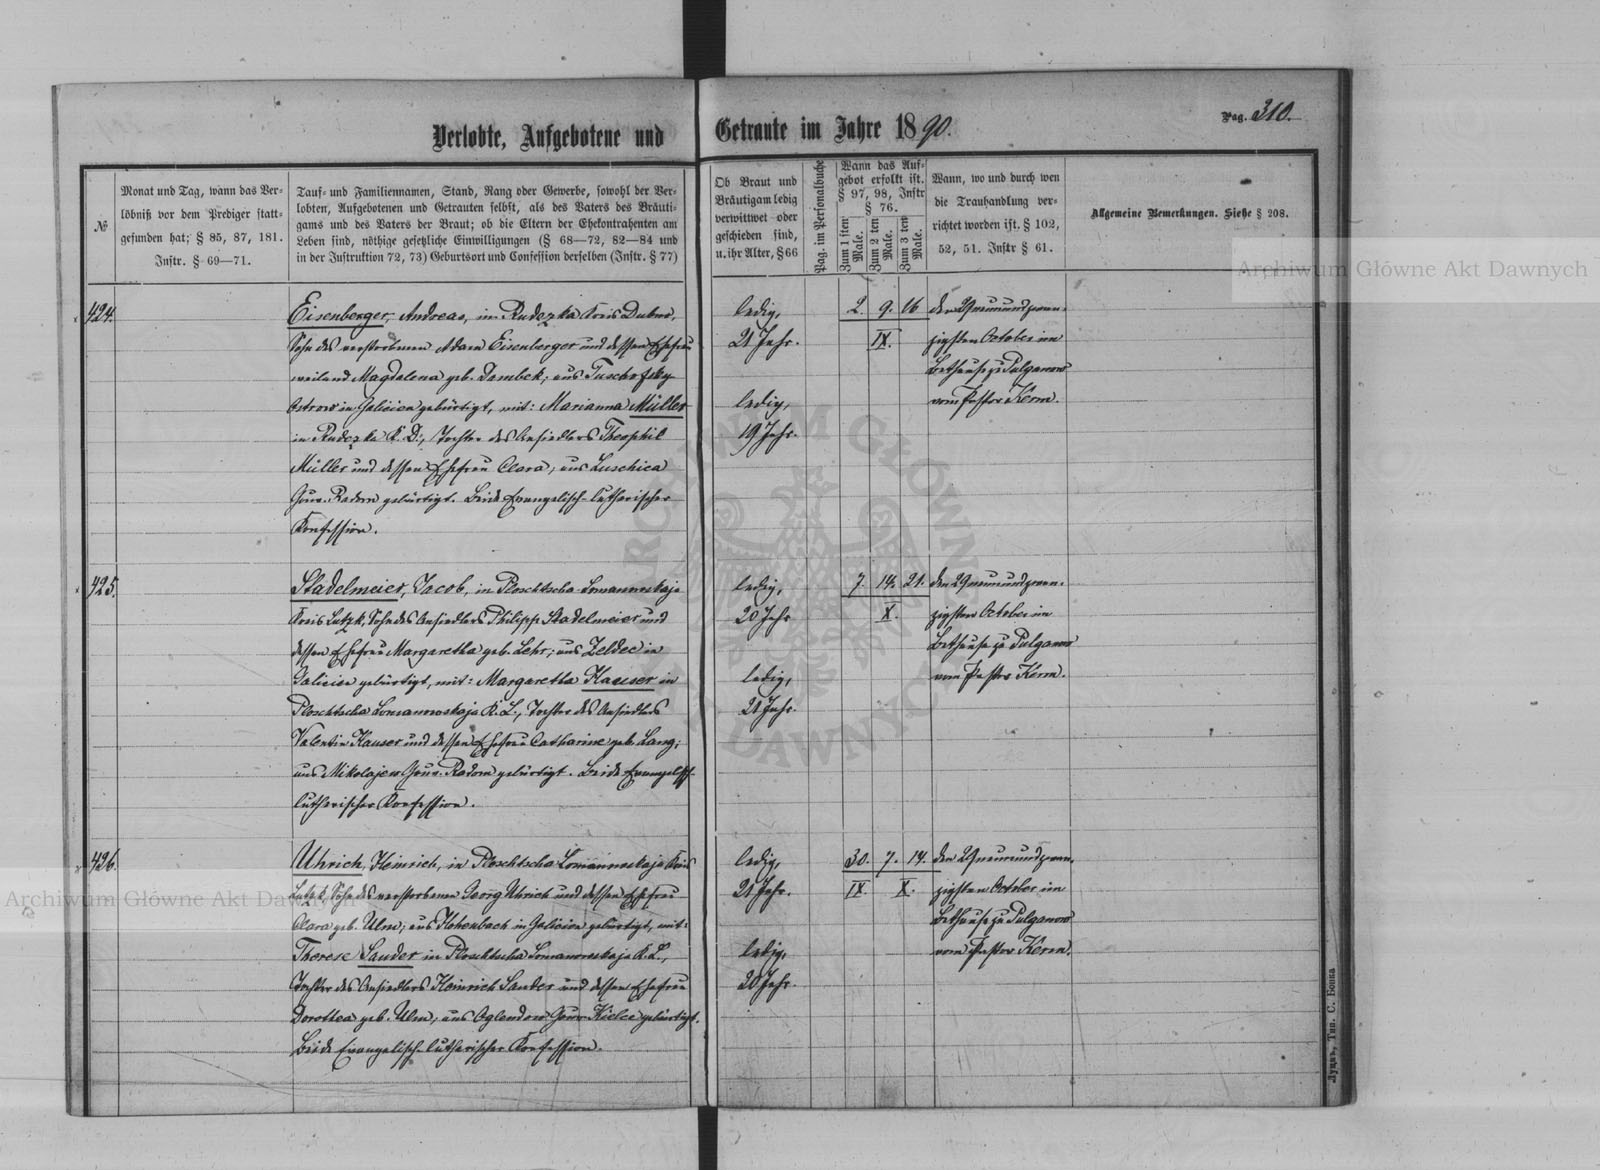 Verlobte, Aufgebotene und Getraute im Jahre 1890.
Pag. 310.
№
Monat und Tag, wann das Ver-
löbniß vor dem Prediger statt-
gefunden hat; § 85, 87, 181.
Instr. § 69—71.
Tauf- und Familiennamen, Stand, Rang oder Gewerbe, sowohl der Ver-
lobten, Aufgebotenen und Getrauten selbst, als des Vaters des Bräuti-
gams und des Vaters der Braut; ob die Eltern der Ehekontrahenten am
Leben sind, nöthige gesetzliche Einwilligungen (§ 68—72, 82—84 und
in der Instruktion 72, 73) Geburtsort und Confession derselben (Instr. § 77)
Ob Braut und
Bräutigam ledig
verwittwet oder
geschieden sind,
u. ihr Alter, § 66
Pag. im Personalbuche
Wann das Auf-
gebot erfolkt ist.
§ 97, 98, Instr
§ 76.
Zum 1 sten
Male.
Zum 2 ten
Male.
Zum 3 ten
Male.
Wann, wo und durch wen
die Trauhandlung ver-
richtet worden ist. § 102,
52, 51. Instr § 61.
Allgemeine Bemerkungen. Siehe § 208.
424.
Eisenberger, Andreas, in Rudezka Kreis Dubno,
Sohn des verstorbenen Adam Eisenberger und dessen Ehefrau
weiland Magdalena geb. Dambek; aus Tuschofsky
Ostrow in Galicien gebürtigt, mit: Marianna Müller
in Rudezka K. D., Tochter des Ansiedlers Theophil
Müller und dessen Ehefrau Clara; aus Luschica
Gouv. Radom gebürtigt. Beide Evangelisch-lutherischer
Konfession.
ledig,
21 Jahr.
ledig,
19 Jahr.
2. 9. 16
IX.
den 29 neunundzwan-
zigsten October im
Bethause zu Pulganow
vom Pastor Kerm.
425.
Stadelmeier, Jacob, in Ploschtscha-Lomannowskaja
Kreis Lutzk, Sohn des Ansiedlers Philipp Stadelmeier und
dessen Ehefrau Margaretha geb. Lehr; aus Zeldec in
Galicien gebürtigt, mit: Margaretha Hauser in
Ploschtscha Lomannowskaja K. L., Tochter des Ansiedlers
Valentin Hauser und dessen Ehefrau Catharine geb. Lang;
aus Mikolajew Gouv. Radom gebürtigt. Beide Evangelisch-
lutherischer Konfession.
ledig,
20 Jahr
ledig,
21 Jahr.
7. 14. 21.
X.
den 29 neunundzwan-
zigsten October im
Bethause zu Pulganow
vom Pastor Kerm.
426.
Uhrich, Heinrich, in Ploschtscha Lomannowskaja Kreis
Lutzk, Sohn des verstorbenen Georg Uhrich und dessen Ehefrau
Clara geb. Ulm; aus Hohenbach in Galicien gebürtigt, mit:
Therese Sauder in Ploschtscha Lomanowskaja K. L.,
Tochter des Ansiedlers Heinrich Sauder und dessen Ehefrau
Dorothea geb. Ulm; aus Oglendow Gouv. Kielce gebürtigt.
Beide Evangelisch-lutherischer Konfession.
ledig,
21 Jahr.
ledig,
20 Jahr.
30. 7. 14.
IX. X.
den 29 neunundzwan-
zigsten October im
Bethause zu Pulganow
vom Pastor Kerm.
Archiwum Główne Akt Dawnych
Archiwum Główne Akt Dawnych
ARCHIWUM GŁÓWNE AKT DAWNYCH
Луцкъ, Тип. С. Бонка